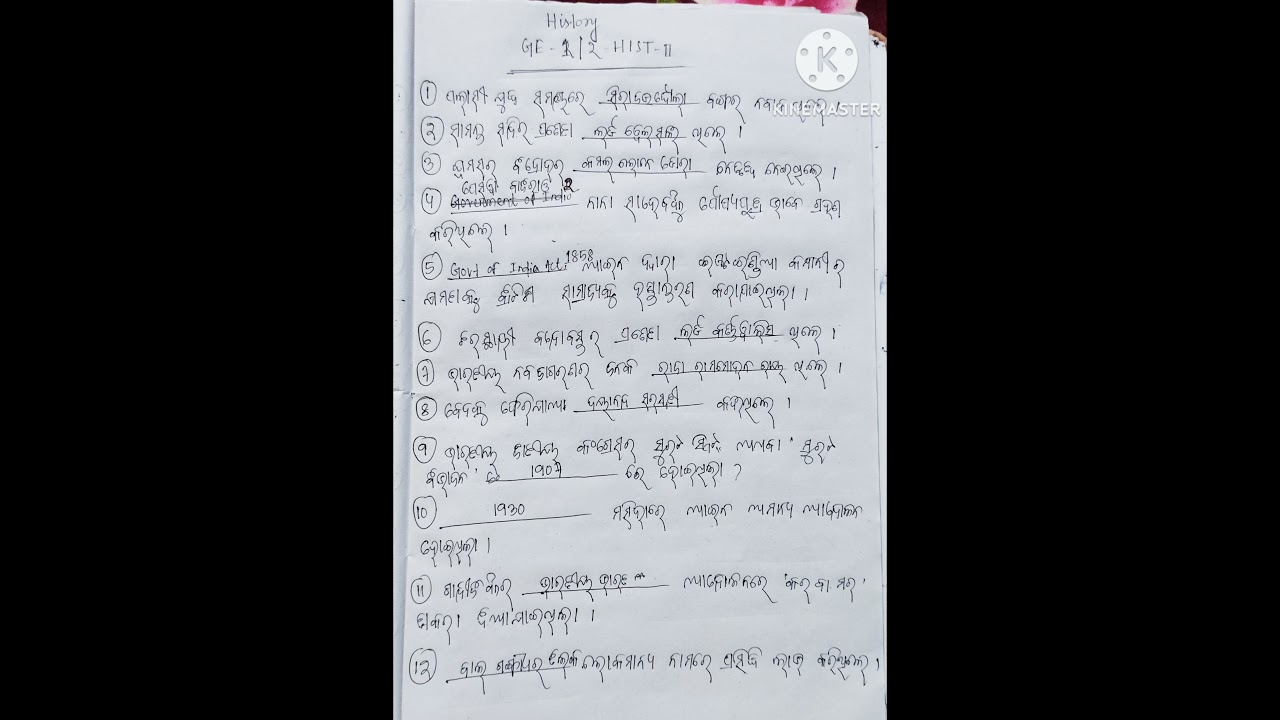 History
GE-1/2-HIST-II
KINEMASTER
① ପଲାସୀ ଯୁଦ୍ଧ ସମୟରେ ସିରାଜଉଦୌଲା ବଙ୍ଗର ନବାବ ଥିଲେ ।
② ସାମନ୍ତ ସନ୍ଧିର ପ୍ରଣେତା ଲର୍ଡ ୱେଲସଲି ଥିଲେ ।
③ ଘୁମୁସର ବିଦ୍ରୋହର କମଲ ଲୋଚନ ଦୋରା ନେତୃତ୍ୱ ନେଇଥିଲେ ।
ପେଶୱା ବାଜିରାଓ 2
④ Government of India ନାନା ସାହେବଙ୍କୁ ପୌଷ୍ୟପୁତ୍ର ଭାବେ ଗ୍ରହଣ
କରିଥିଲେ ।
⑤ Govt of India Act, 1858 ଆଇନ ଦ୍ୱାରା ଇଷ୍ଟଇଣ୍ଡିଆ କମ୍ପାନୀର
କ୍ଷମତାକୁ ବ୍ରିଟିଶ ସାମ୍ରାଜ୍ୟକୁ ହସ୍ତାନ୍ତରଣ କରାଯାଇଥିଲା ।
⑥ ଚିରସ୍ଥାୟୀ ବନ୍ଦୋବସ୍ତର ପ୍ରଣେତା ଲର୍ଡ କର୍ଣ୍ଣୱାଲିସ ଥିଲେ ।
⑦ ଭାରତୀୟ ନବଜାଗରଣର ଜନକ ରାଜା ରାମମୋହନ ରାୟ ଥିଲେ ।
⑧ ବେଦକୁ ଫେରିଯାଅ ଦୟାନନ୍ଦ ସରସ୍ୱତୀ କହିଥିଲେ ।
⑨ ଭାରତୀୟ ଜାତୀୟ କଂଗ୍ରେସର ସୁରଟ ଅଥବା 'ସୁରଟ
ବିଭାଜନ' 1907 ରେ ହୋଇଥିଲା ?
⑩ 1930 ମସିହାରେ ଆଇନ ଅମାନ୍ୟ ଆନ୍ଦୋଳନ
ହୋଇଥିଲା ।
⑪ ଗାନ୍ଧିଜୀଙ୍କର ଆନ୍ଦୋଳନରେ 'କର ବା ମର'
ଡାକରା ଦିଆଯାଇଥିଲା ।
⑫ ବାଲ ଗଙ୍ଗାଧର ତିଲକ ଲୋକମାନ୍ୟ ନାମରେ ପ୍ରସିଦ୍ଧି ଲାଭ କରିଥିଲେ ।